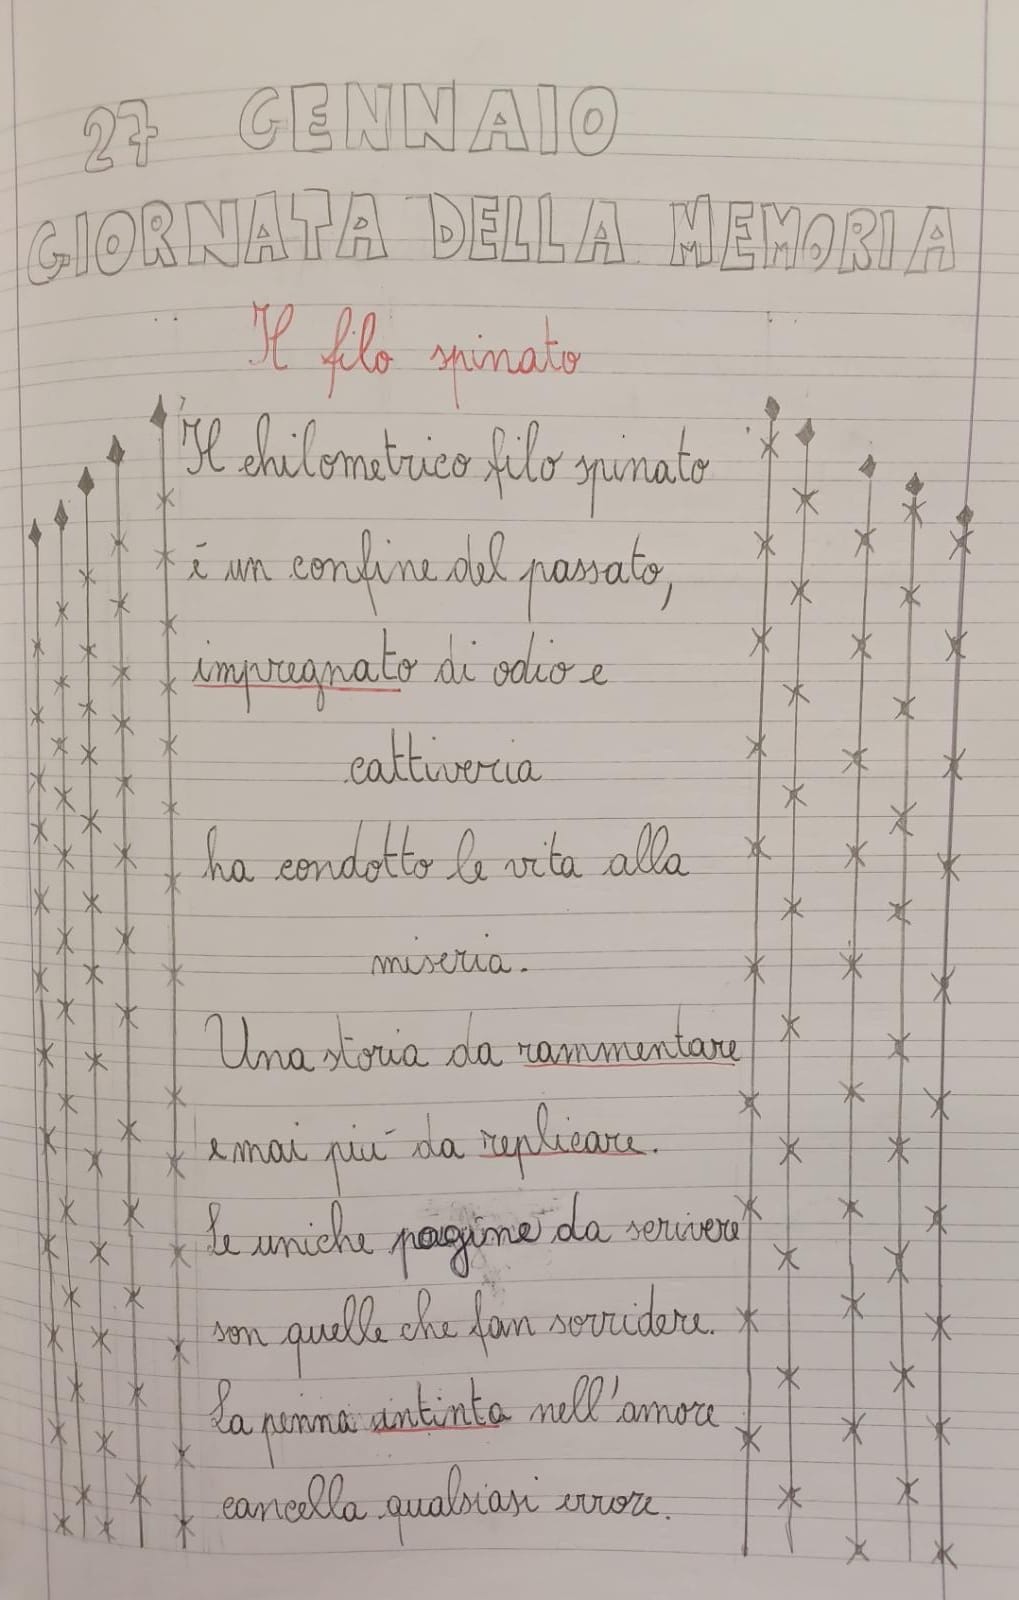 27 GENNAIO
GIORNATA DELLA MEMORIA
Il filo spinato
Il chilometrico filo spinato
è un confine del passato,
impregnato di odio e
cattiveria
ha condotto le vita alla
miseria.
Una storia da rammentare
e mai più da replicare.
Le uniche pagine da scrivere
son quelle che fan sorridere.
La penna intinta nell'amore
cancella qualsiasi errore.